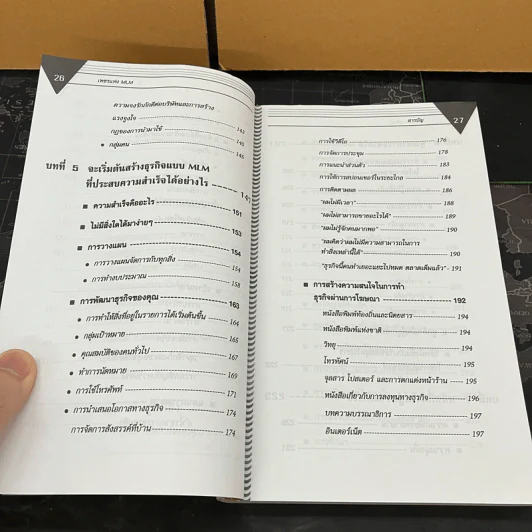 26
เพชรแห่ง MLM
ความจงรักภักดีต่อบริษัทและการสร้าง
แรงจูงใจ
กฎของการนำมาใช้ 145
กลุ่มคน 146
บทที่ 5 จะเริ่มต้นสร้างธุรกิจแบบ MLM
ที่ประสบความสำเร็จได้อย่างไร
ความสำเร็จคืออะไร 151
ไม่มีสิ่งใดได้มาง่ายๆ 151
การวางแผน 154
การวางแผนจัดการกับทุกสิ่ง 154
การทำงบประมาณ 158
การพัฒนาธุรกิจของคุณ 163
การทำให้สิ่งที่อยู่ในรายการได้เริ่มต้นขึ้น 164
กลุ่มเป้าหมาย 165
คุณสมบัติของคนทั่วไป 167
ทำการนัดหมาย 169
การใช้โทรศัพท์ 171
การนำเสนอโอกาสทางธุรกิจ 174
การจัดการสังสรรค์ที่บ้าน 174
สารบัญ
27
การใช้วิดีโอ 176
การจัดการประชุม 178
การแนะนำส่วนตัว 183
การใช้การสปอนเซอร์ในระยะไกล 184
การติดตามผล 186
"ผมไม่มีเวลา" 188
"ผมไม่สามารถขายอะไรได้" 189
"ผมไม่รู้จักคนมากพอ" 190
"ผมคิดว่าผมไม่มีความสามารถในการ
ทำสิ่งเหล่านี้ได้" 190
"ธุรกิจนี้คนทำเยอะแยะไปหมด ตลาดเต็มแล้ว" 191
การสร้างความสนใจในการทำ
ธุรกิจผ่านการโฆษณา 192
หนังสือพิมพ์ท้องถิ่นและนิตยสาร 194
หนังสือพิมพ์แห่งชาติ 194
วิทยุ 194
โทรทัศน์ 195
จุลสาร โปสเตอร์ และการตกแต่งหน้าร้าน 195
หนังสือเกี่ยวกับการลงทุนทางธุรกิจ 196
บทความบรรณาธิการ 197
อินเตอร์เน็ต 197